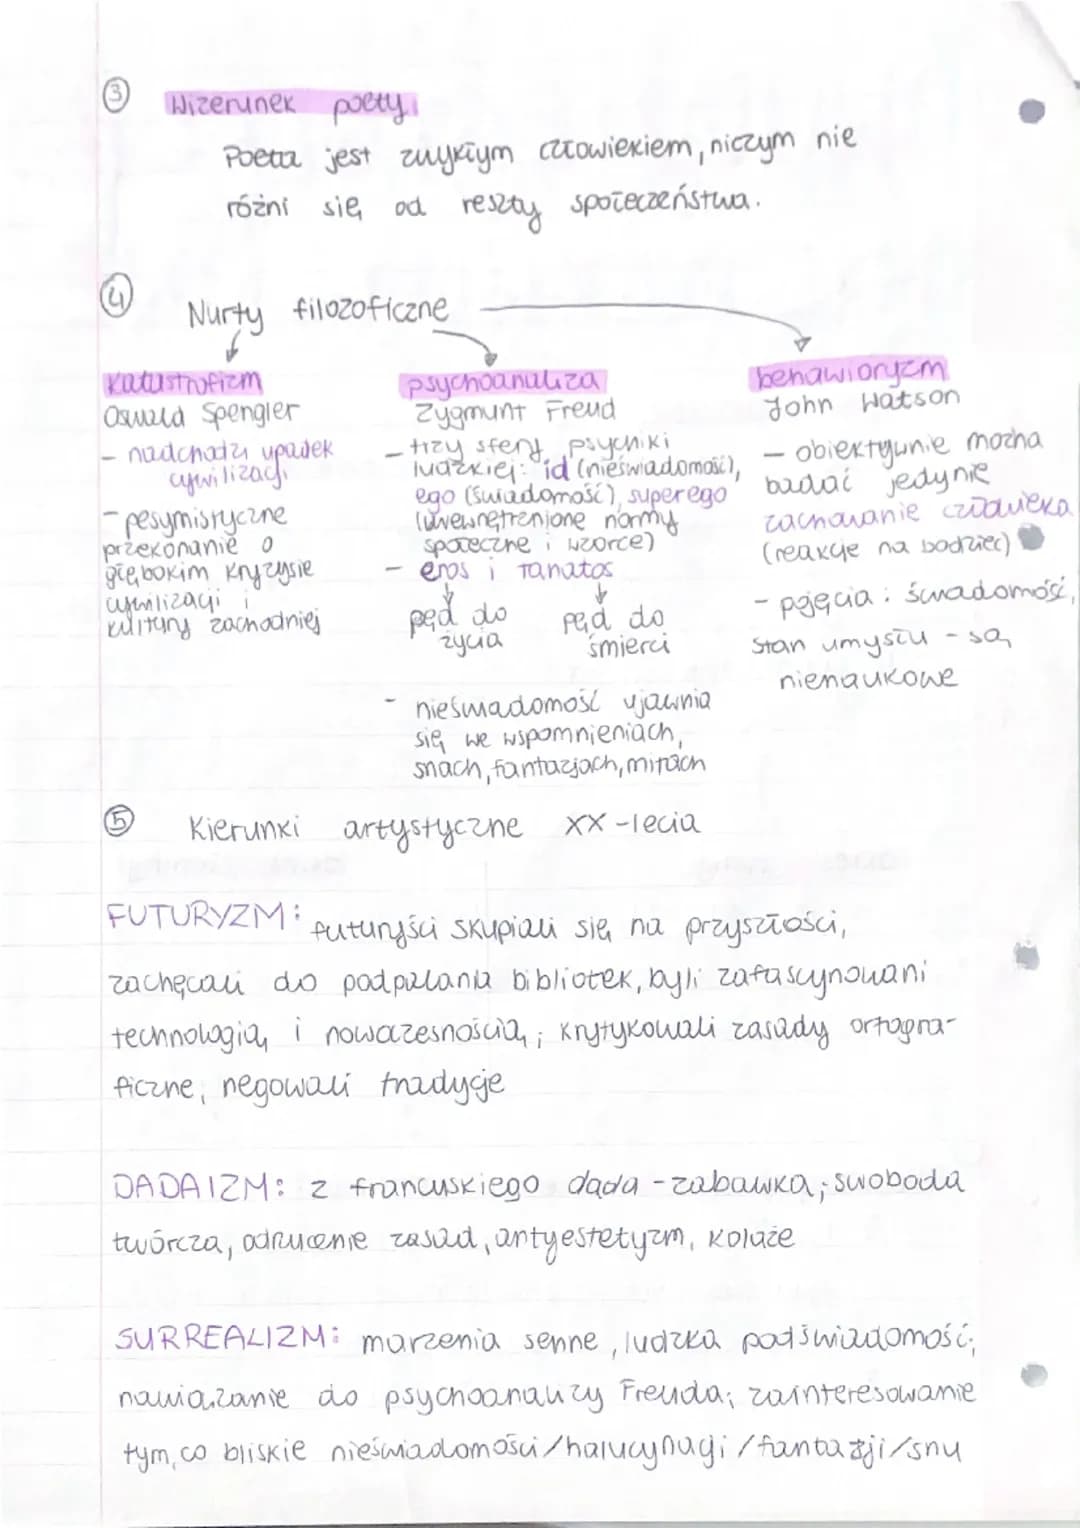 ③ Wizerunek poety.
Poeta jest zwykłym człowiekiem, niczym nie
różni się od reszty społeczeństwa.
④ Nurty filozoficzne
katastrofizm
Oswald Spengler
- nadchodzi upadek
cywilizacji
- pesymistyczne
przekonanie o
głębokim kryzysie
cywilizacji i
kultury zachodniej
psychoanaliza
Zygmunt Freud
- trzy sfery psychiki
ludzkiej: id (nieświadomość),
ego (świadomość), superego
(uwewnętrznione normy
społeczne i wzorce)
- eros i Tanatos
pęd do życia
pęd do śmierci
- nieświadomość ujawnia
się we wspomnieniach,
snach, fantazjach, mitach
behawioryzm
John Watson
- obiektywnie można
badać jedynie
zachowanie człowieka
(reakcje na bodziec)
- pojęcia: świadomość,
stan umysłu - są
nienaukowe
⑤ Kierunki artystyczne XX-lecia
FUTURYZM: futuryści skupiali się na przyszłości,
zachęcali do podpalania bibliotek, byli zafascynowani
technologią i nowoczesnością; krytykowali zasady ortogra-
ficzne; negowali tradycje
DADAIZM: z francuskiego dada - zabawka; swoboda
twórcza, odrzucenie zasad, antyestetyzm, kolaże
SURREALIZM: marzenia senne, ludzka podświadomość;
nawiązanie do psychoanalizy Freuda; zainteresowanie
tym, co bliskie nieświadomości/halucynacji/fantazji/snu